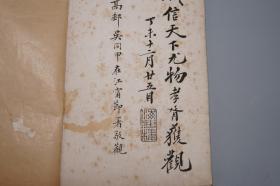 信天下尤物孝胥獲觀
丁未十二月廿五日
高郵吳同甲在江甯節署敬觀